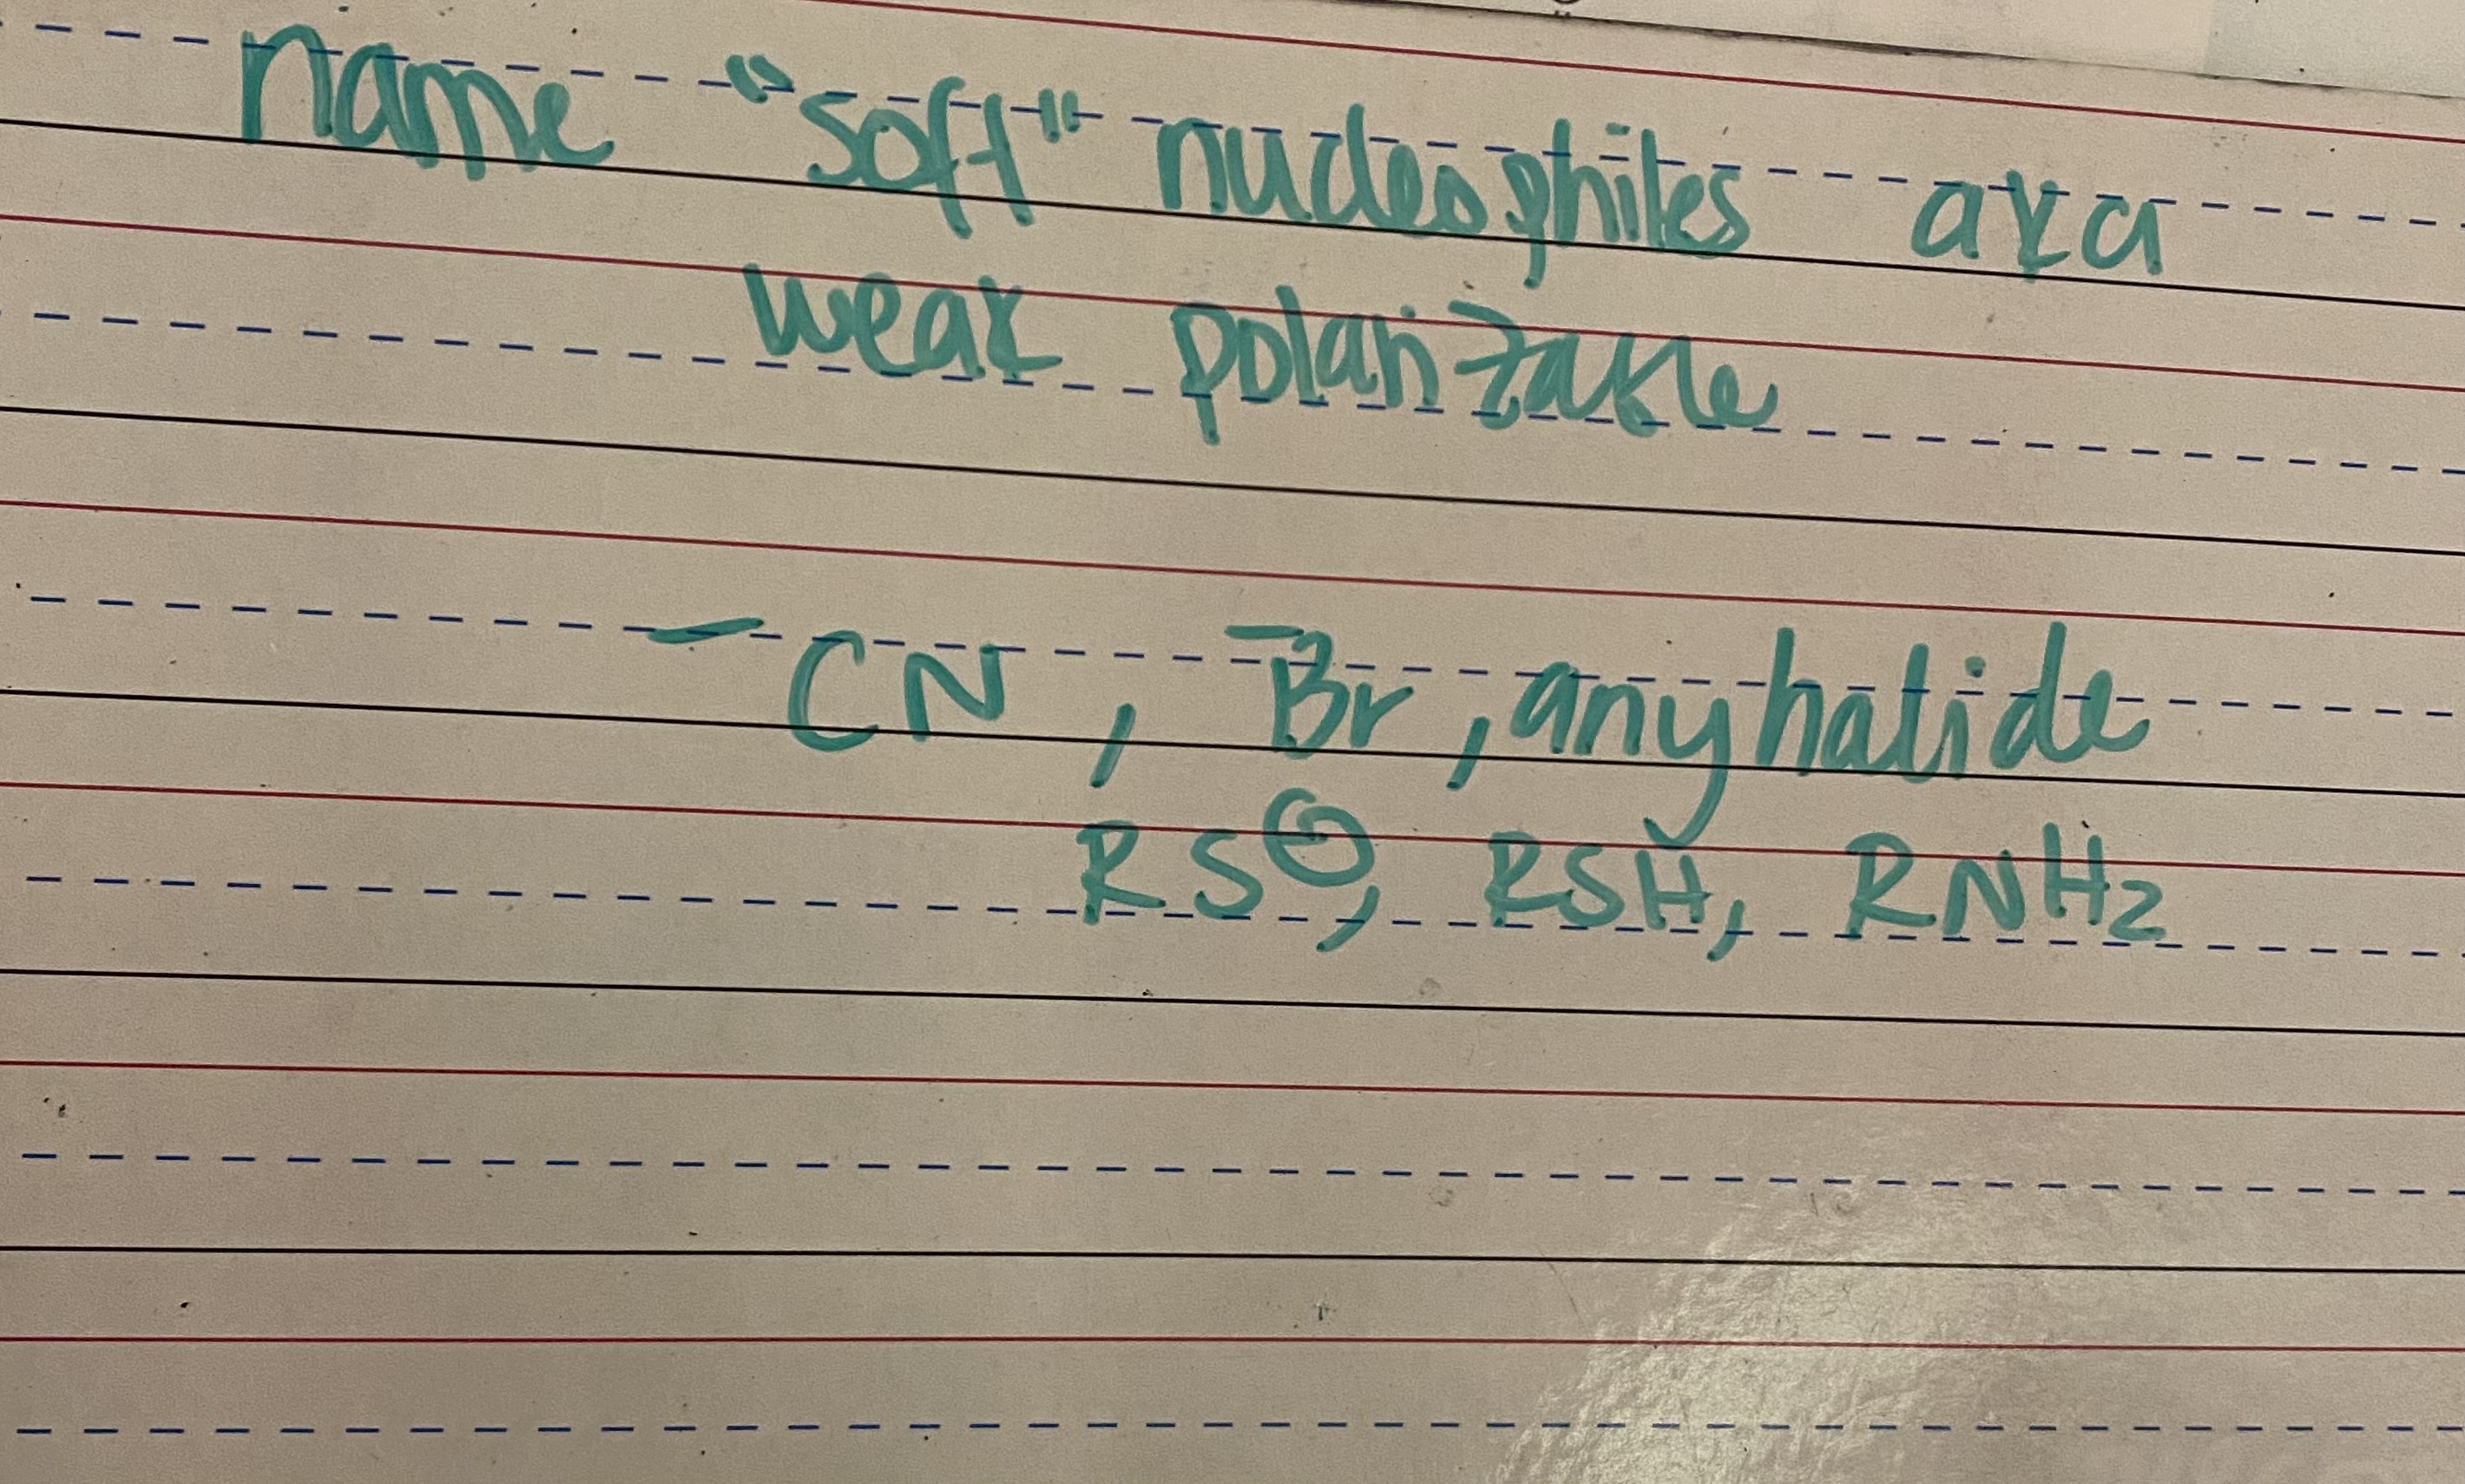 name "soft" nucleophiles aka
weak polarizable
⁻CN, ⁻Br, any halide
RS⊖, RSH, RNH₂